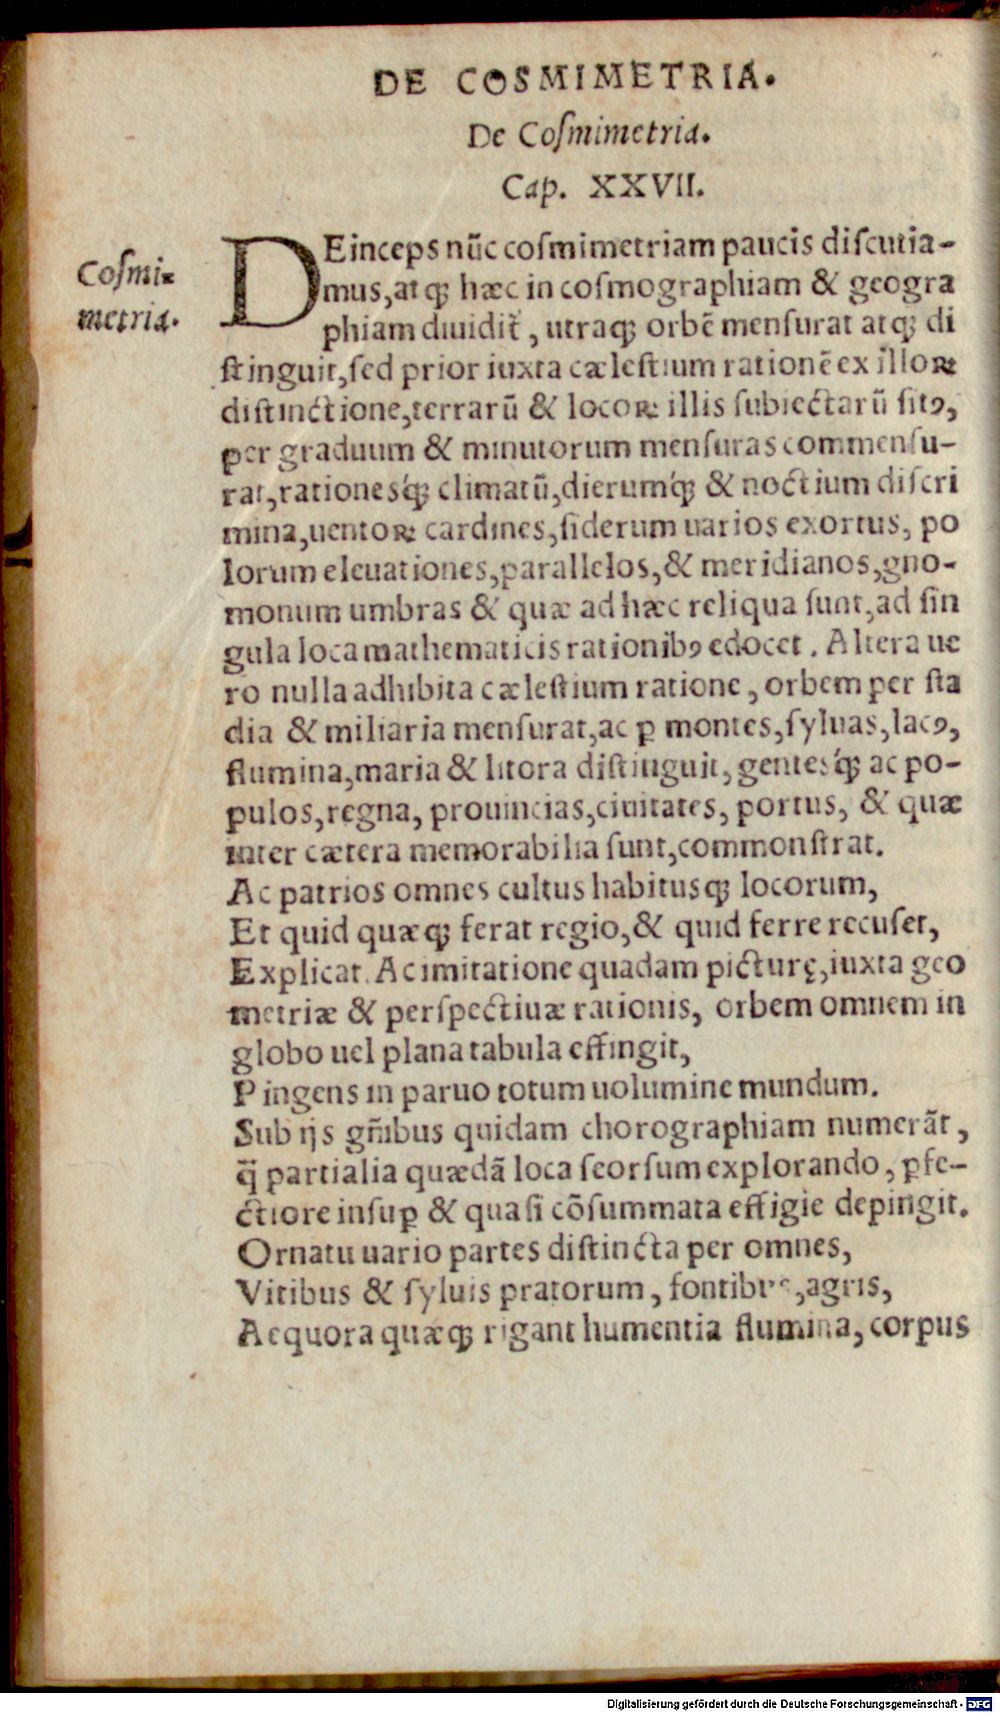 DE COSMIMETRIA.
De Coſmimetria.
Cap. XXVII.
Coſmi-
metria.
DEinceps nūc coſmimetriam paucis diſcutia-
mus, atq; hæc in coſmographiam & geogra
phiam diuidiť, utraq; orbē menſurat atq; di
ſtinguit, ſed prior iuxta cæleſtium rationē ex illoꝝ
diſtinctione, terrarū & locoꝝ illis ſubiectarū ſitꝰ,
per graduum & minutorum menſuras commenſu-
rat, rationesq́; climatū, dierumq́; & noctium diſcri
mina, uentoꝝ cardines, ſiderum uarios exortus, po
lorum eleuationes, parallelos, & meridianos, gno-
monum umbras & quæ ad hæc reliqua ſunt, ad ſin
gula loca mathematicis rationibꝰ edocet. Altera ue
ro nulla adhibita cæleſtium ratione, orbem per ſta
dia & miliaria menſurat, ac ꝑ montes, ſyluas, lacꝰ,
flumina, maria & litora diſtinguit, gentesq́; ac po-
pulos, regna, prouincias, ciuitates, portus, & quæ
inter cætera memorabilia ſunt, commonſtrat.
Ac patrios omnes cultus habitusq; locorum,
Et quid quæq; ferat regio, & quid ferre recuſet,
Explicat. Ac imitatione quadam picturę, iuxta geo
metriæ & perſpectiuæ rationis, orbem omnem in
globo uel plana tabula effingit,
Pingens in paruo totum uolumine mundum.
Sub ijs gñibus quidam chorographiam numerāt,
q̄ partialia quædā loca ſeorſum explorando, ꝑfe-
ctiore inſuꝑ & quaſi cōſummata effigie depingit.
Ornatu uario partes diſtincta per omnes,
Vitibus & ſyluis pratorum, fontibus, agris,
Aequora quæq; rigant humentia flumina, corpus
Digitalisierung gefördert durch die Deutsche Forschungsgemeinschaft - DFG